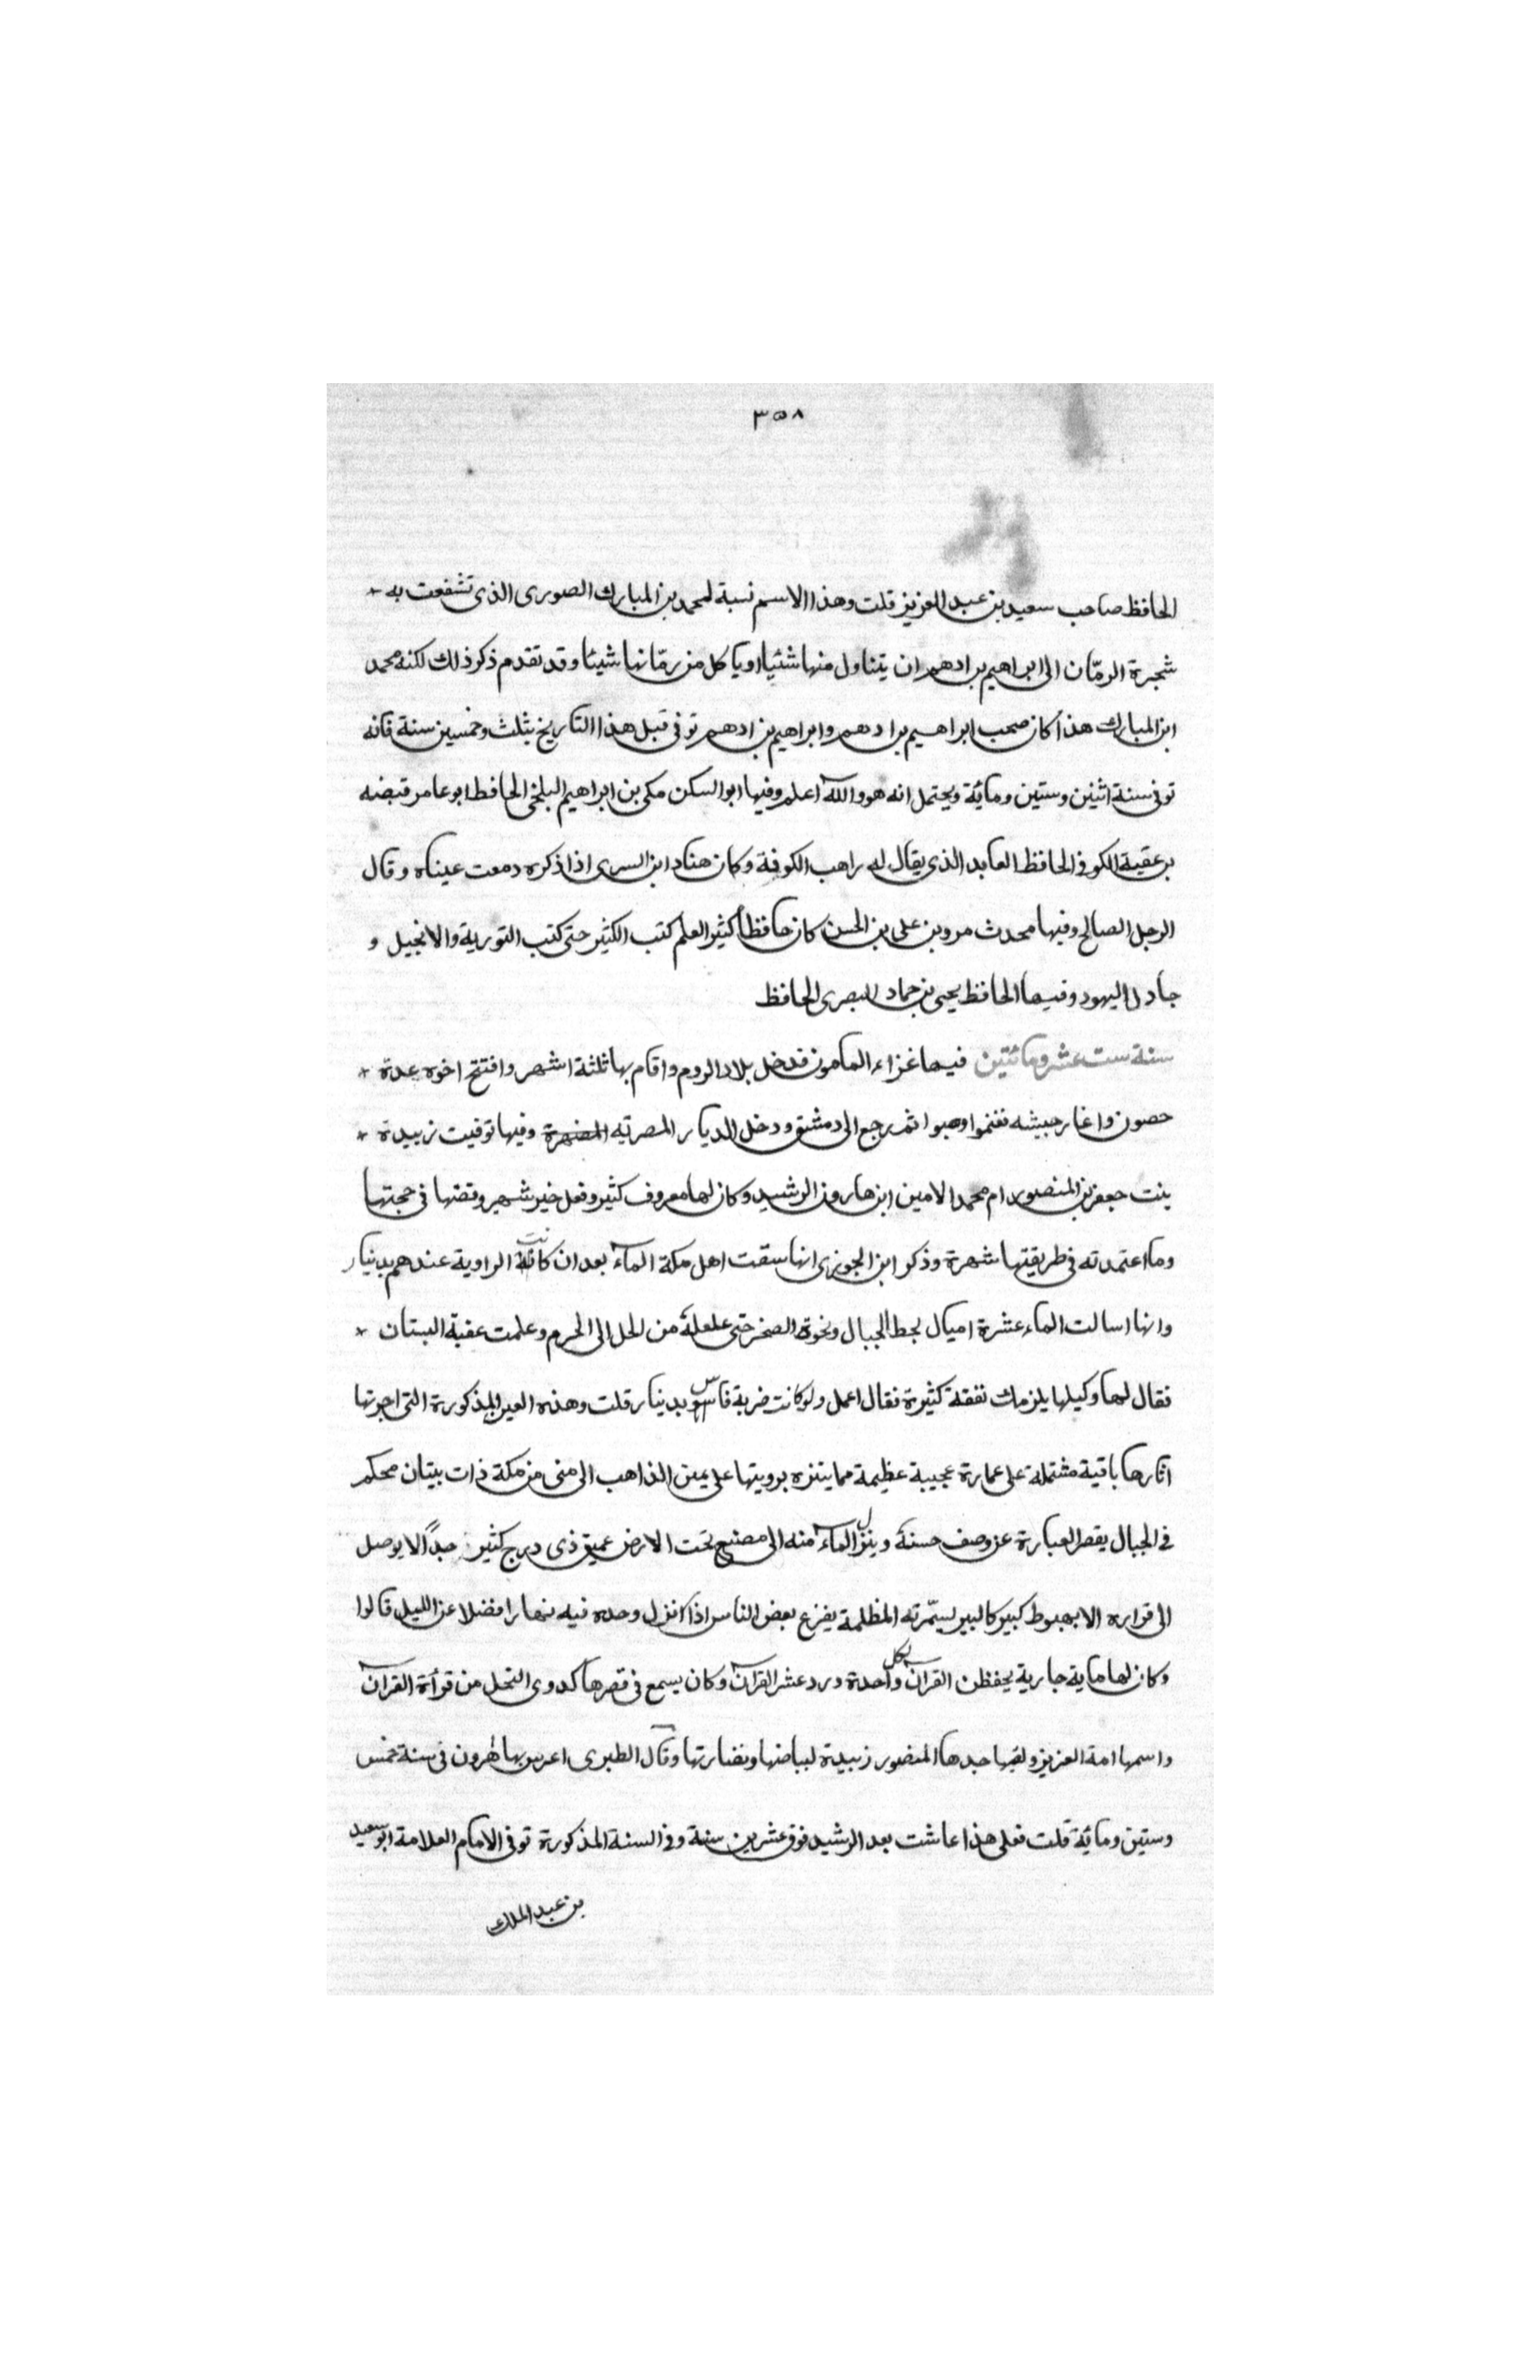 ٣٥٨
الحافظ صاحب سعيد بن عبد العزيز قلت وهذا الاسم نسبة لمحمد بن المبارك الصورى الذى تشفعت به
شجرة الرمّان الى ابراهيم بن ادهم ان يتناول منها شئيا او ياكل من رمّانها شيئا وقد تقدم ذكر ذلك لكنه محمد
ابن المبارك هذا كان صحب ابراهيم بن ادهم وابراهيم بن ادهم توفى قبل هذا التاريخ بثلث وخمسين سنة فانه
توفى سنة اثنين وستين ومائة ويحتمل انه هو والله اعلم وفيها ابو السكن مكى بن ابراهيم البلخى الحافظ ابو عامر قبيضه
بن عقبة الكوفى الحافظ العابد الذى يقال له راهب الكوفة وكان هناد ابن السرى اذا ذكره دمعت عيناه وقال
الرجل الصالح وفيها محدث مرو بن على بن الحسن كان حافظا كثير العلم كتب الكثير حتى كتب التورية والانجيل و
جادل اليهود وفيها الحافظ يحيى بن حماد البصرى الحافظ
سنة ست عشر ومائتين فيها غزاء المامون فدخل بلاد الروم واقام بها ثلثة اشهر وافتتح اخوه عدة
حصون واغار جيشه فغنموا وسبوا ثم رجع الى دمشق ودخل الديار المصريه وفيها توفيت زبيدة
بنت جعفر بن المنصور ام محمد الامين ابن هارون الرشيد وكان لها معروف كثير وفعل خير شهير وقصتها فى حجتها
وما اعتمدته فى طريقتها شهرة وذكر ابن الجوزى انها سقت اهل مكة المآء بعد ان كانت الراوية عندهم بدنيار
وانها اسالت الماء عشرة اميال بحط الجبال ونحوة الصخر حتى علعلة من الحل الى الحرم وعلمت عقبة البستان
فقال لها وكيلها يلزمك نفقة كثيرة فقال اعمل ولو كانت ضربة فاس بدنيار قلت وهذه العين المذكورة التى اجرتها
اثارها باقية مشتملة على عمارة عجيبة عظيمة مما يتنزه برويتها على يمين الذاهب الى منى من مكة ذات بيتان محكم
فى الجبال يقصر العبارة عن وصف حسنة وينزل المآء منه الى مصنع تحت الارض عميق ذى درج كثير جدًا لا يوصل
الى قراره الا بهبوط كبير كالبير يسمّرته المظلمة يفزع بعض الناس اذا انزل وحده فيه نهارا فضلا عن الليل قالوا
وكان لها ماية جارية يحفظن القرآن لكل واحدة ورد عشر القرآن وكان يسمع فى قصرها كدوى النحل من قرأة القرآن
واسمها امة العزيز ولقبها جدها المنصور زبيدة لبياضها ونضارتها وقال الطبرى اعرس بها هرون فى سنة خمس
وستين ومائة قلت فعلى هذا عاشت بعد الرشيد فوق عشرين سنة وفى السنة المذكورة توفى الامام العلامة ابو سعيد
بن عبد الملك